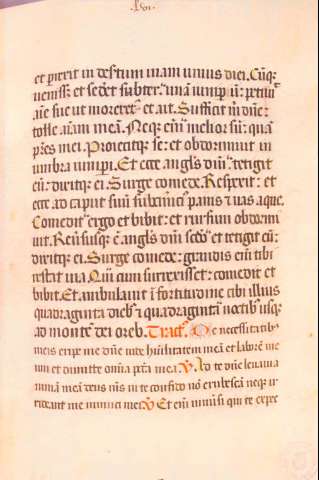 et perrexit in desertum viam unius diei. Cumq;
venisset et sederet subter una iunip̄ũ: petiuit
aīe sue ut moreret᷑ et ait. Sufficit m̄ dñe:
tolle aīam meā. Neq; eni᷑ melior suꝫ quã
patres mei. Proiecitq; se: et obdormiuit in
umbra iuniperi. Et ecce angl̃s dñi tetigit
eũ: dixitq; ei. Surge comede. Respexit: et
ecce ad caput suũ subcineric᷒ panis ⁊ uas aque.
Comedit ergo et bibit: et rursum obdormi
uit. Reuersusq; ē angl̃s dñi scd̃o et tetigit eũ:
dixitq; ei. Surge comede: grandis eni᷑ tibi
restat uia. Qui cum surrexisset: comedit et
bibit. Et ambulauit ĩ fortitudine cibi illius
quadraginta dieb᷒ ⁊ quadraginta noctib᷒ usq;
ad montē dei oreb. Tract᷒. De necessitatib᷒
meis eripe me dñe uide hũilitatem meã et laborē me
um et dimitte omĩa pctã mea. V̷. Ad te dñe leuaui a
nimã meã deus m̃s in te confido nõ erubescã neq; ir
rideant me inimici mei V̷ Et eni᷑ uniũsi qui te expe